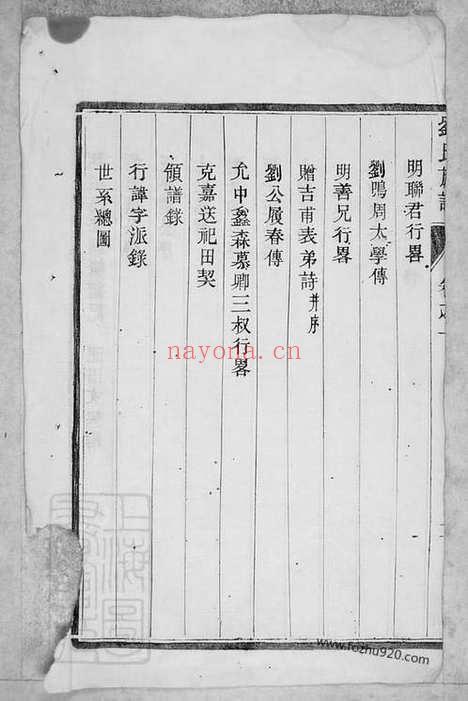 劉氏族譜
卷之一
明聯君行畧
劉鳴周太學傳
明善兄行畧
贈吉甫表弟詩并序
劉公履春傳
允中鑫森慕卿三叔行畧
克嘉送祀田契
領譜錄
行諱字派錄
世系總圖
nayona.cn
www.fozhu920.com